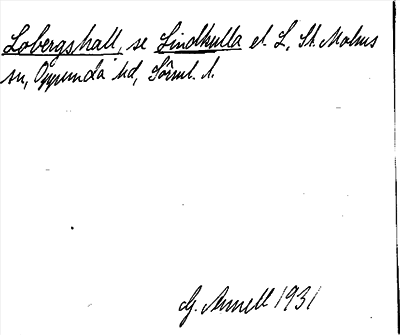 Lobergshall, se Lindkulla el. L, St. Malms
sn, Oppunda hd, Sörml. l.
G. Annell 1931